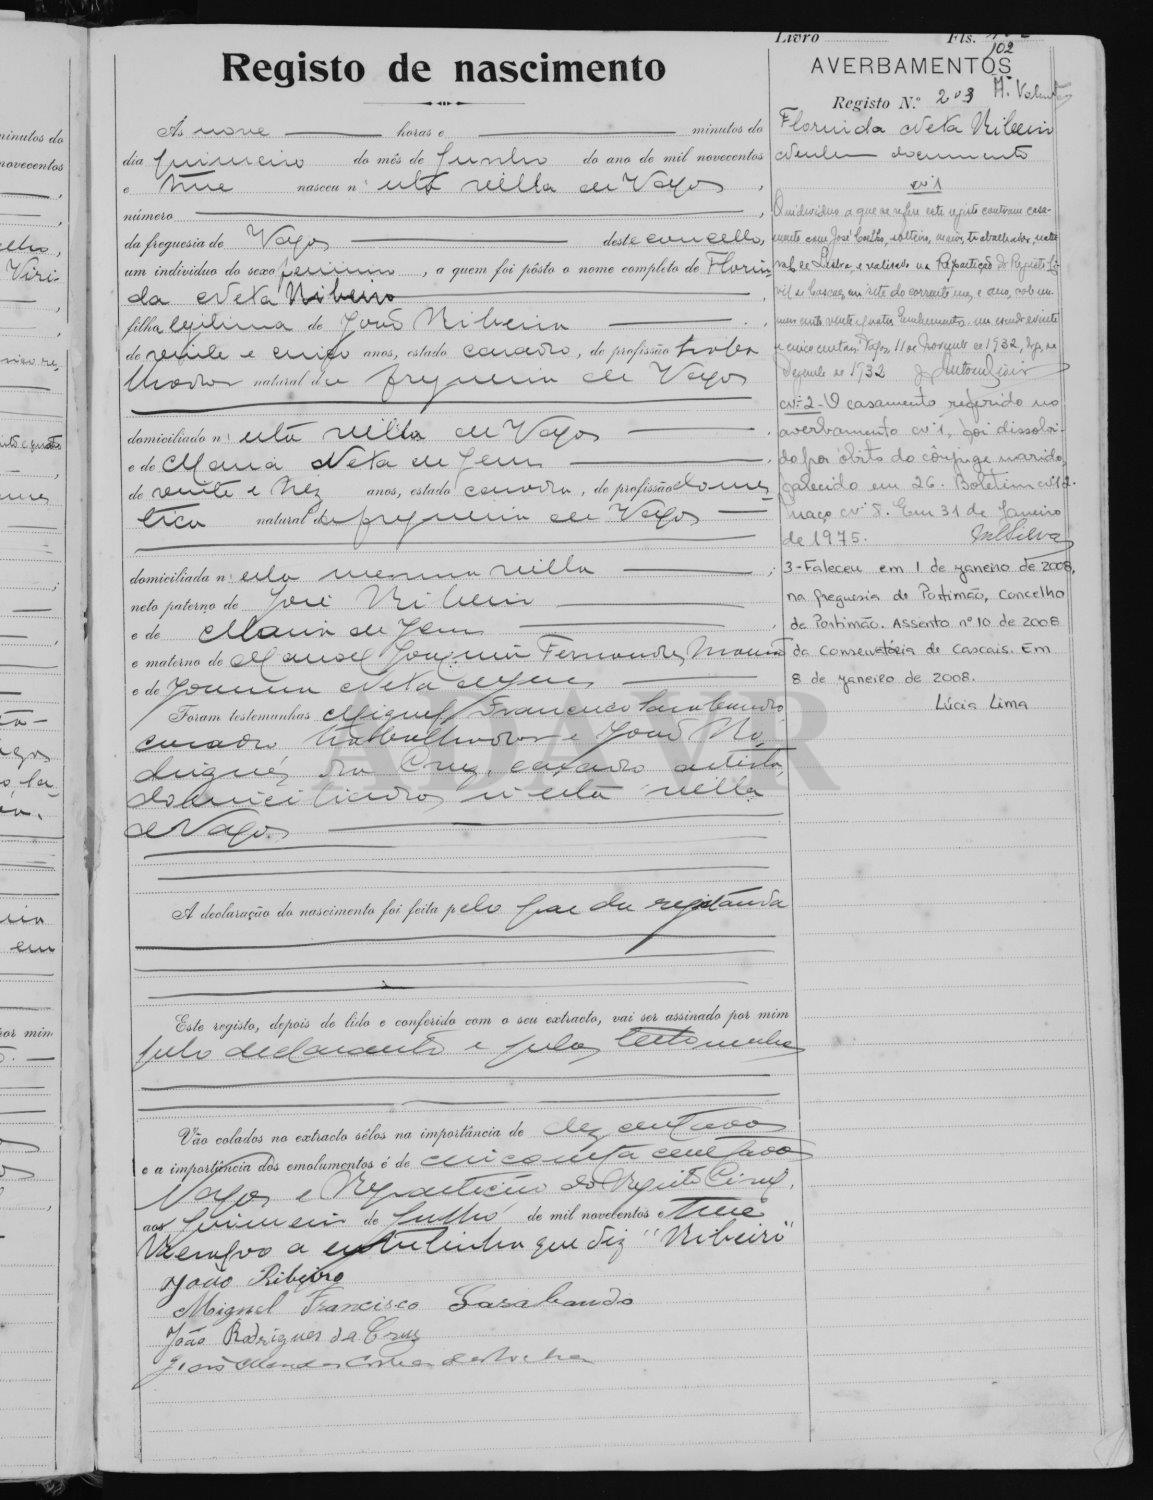 Livro Fls. 102
AVERBAMENTOS
Registo N.º 203
Florinda Neta Ribeiro
documento
Nº 1
O indivíduo a que se refere este registo contraiu casa-
mento com José Coelho, solteiro, maior, trabalhador, natu-
ral de Lisboa, e realizado na Repartição do Registo Ci-
vil de Cascais em sete do corrente mez e ano, sob nu-
mero cento vinte e quatro. Emolumento um escudo e vinte
e cinco centavos. Vagos, 11 de Novembro de 1932,
Dezembro de 1932
Nº 2 - O casamento referido no
averbamento nº 1, foi dissolvi-
do por óbito do cônjuge marido,
falecido em 26. Boletim nº 12.
Maço nº 8. Em 31 de Janeiro
de 1975. Silva
3-Faleceu em 1 de janeiro de 2008,
na freguesia de Portimão, Concelho
de Portimão. Assento nº 10 de 2008
da Conservatória de Cascais. Em
8 de janeiro de 2008.
Lúcia Lima
Registo de nascimento
Ás nove horas e minutos do
dia primeiro do mês de Junho do ano de mil novecentos
e treze nasceu n'esta villa de Vagos,
número
da freguesia de Vagos deste concelho,
um individuo do sexo feminino, a quem foi pôsto o nome completo de Florin
da Neta Ribeiro
filha legitima de João Ribeiro
de vinte e cinco anos, estado casado, de profissão traba
lhador natural da freguesia de Vagos
domiciliado n'esta villa de Vagos
e de Maria Neta de Jesus
de vinte e trez anos, estado casada, de profissão domes
tica natural da freguesia de Vagos
domiciliada n'esta mesma villa;
neto paterno de José Ribeiro
e de Maria de Jesus
e materno de Manoel Joaquim Fernandes
e de Joanna Neta de Jesus
Foram testemunhas Miguel Francisco Sarabando
casado trabalhador e João Ro
drigues da Cruz, casado artista,
domiciliados n'esta villa
de Vagos
A declaração do nascimento foi feita pelo pae da registanda
Este registo, depois de lido e conferido com o seu extracto, vai ser assinado por mim
pelo declarante e pelas testemunhas
Vão colados no extracto sêlos na importância de dez centavos
e a importância dos emolumentos é de cincoenta centavos
Vagos e Repartição do Registo Civil,
aos primeiro de Julho de mil novecentos e treze
Resalvo a entrelinha que diz "Ribeiro"
João Ribeiro
Miguel Francisco Sarabando
João Rodrigues da Cruz
ADAVR